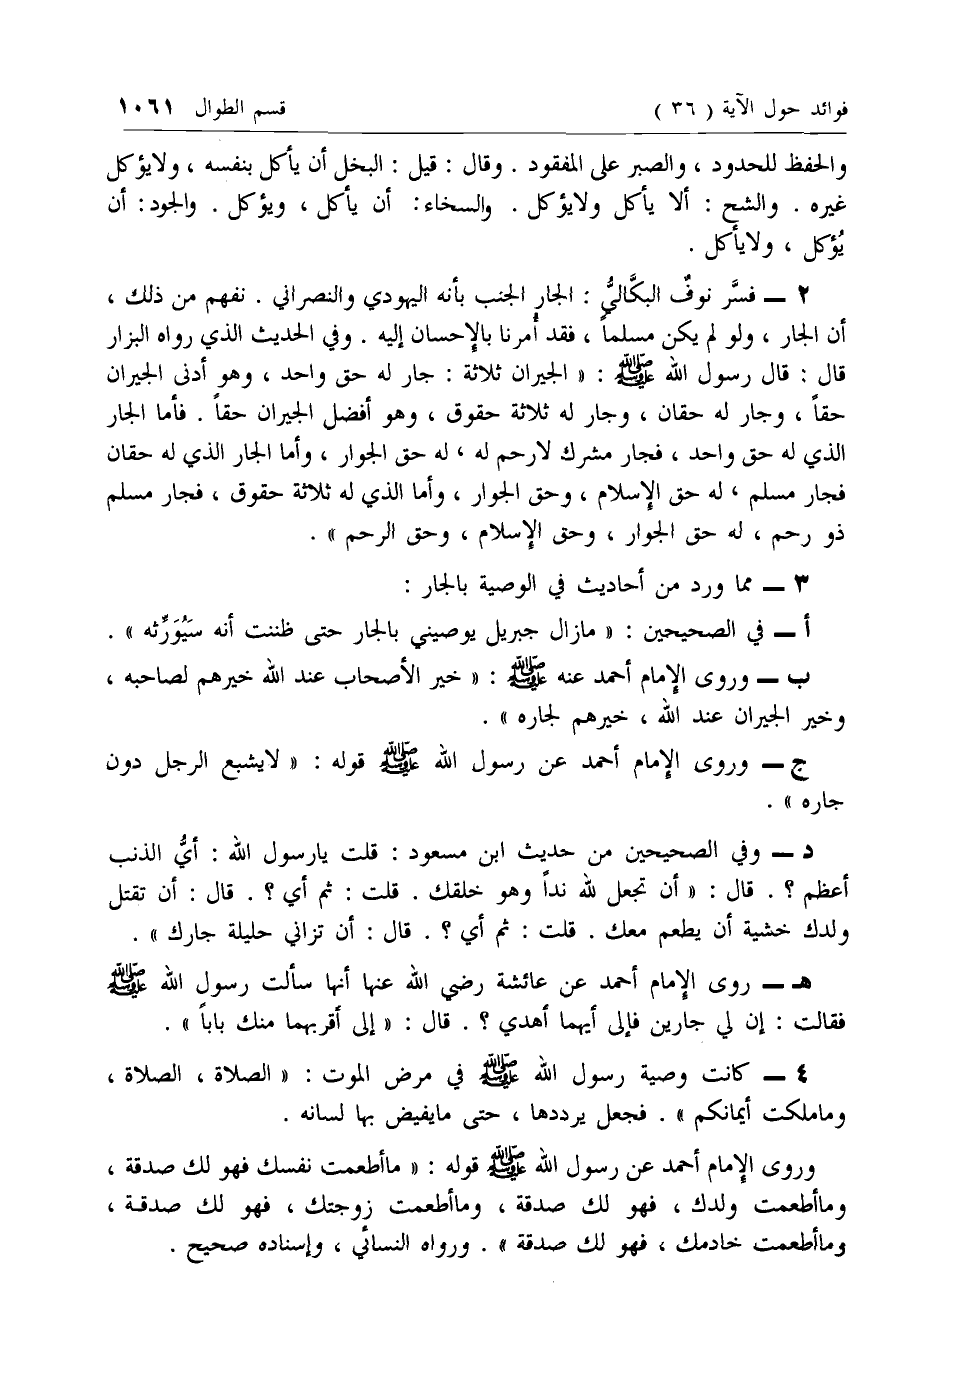 فوائد حول الآية ( ٣٦ ) قسم الطوال ١٠٦١
والحفظ للحدود ، والصبر على المفقود . وقال : قيل : البخل أن يأكل بنفسه ، ولايؤكل
غيره . والشح : ألا يأكل ولايؤكل . والسخاء : أن يأكل ، ويؤكل . والجود : أن
يُؤكل ، ولايأكل .
٢ ــ فسَّر نوفٌ البكَّاليُّ : الجار الجنب بأنه اليهودي والنصراني . نفهم من ذلك ،
أن الجار ، ولو لم يكن مسلماً ، فقد أُمرنا بالإحسان إليه . وفي الحديث الذي رواه البزار
قال : قال رسول الله ﷺ : « الجيران ثلاثة : جار له حق واحد ، وهو أدنى الجيران
حقاً ، وجار له حقان ، وجار له ثلاثة حقوق ، وهو أفضل الجيران حقاً . فأما الجار
الذي له حق واحد ، فجار مشرك لارحم له ، له حق الجوار ، وأما الجار الذي له حقان
فجار مسلم ، له حق الإسلام ، وحق الجوار ، وأما الذي له ثلاثة حقوق ، فجار مسلم
ذو رحم ، له حق الجوار ، وحق الإسلام ، وحق الرحم » .
٣ ــ مما ورد من أحاديث في الوصية بالجار :
أ ــ في الصحيحين : « مازال جبريل يوصيني بالجار حتى ظننت أنه سَيُوَرِّثه » .
ب ــ وروى الإمام أحمد عنه ﷺ : « خير الأصحاب عند الله خيرهم لصاحبه ،
وخير الجيران عند الله ، خيرهم لجاره » .
ج ــ وروى الإمام أحمد عن رسول الله ﷺ قوله : « لايشبع الرجل دون
جاره » .
د ــ وفي الصحيحين من حديث ابن مسعود : قلت يارسول الله : أيُّ الذنب
أعظم ؟ . قال : « أن تجعل لله نداً وهو خلقك . قلت : ثم أي ؟ . قال : أن تقتل
ولدك خشية أن يطعم معك . قلت : ثم أي ؟ . قال : أن تزاني حليلة جارك » .
هـ ــ روى الإمام أحمد عن عائشة رضي الله عنها أنها سألت رسول الله ﷺ
فقالت : إن لي جارين فإلى أيهما أهدي ؟ . قال : « إلى أقربهما منك باباً » .
٤ ــ كانت وصية رسول الله ﷺ في مرض الموت : « الصلاة ، الصلاة ،
وماملكت أيمانكم » . فجعل يرددها ، حتى مايفيض بها لسانه .
وروى الإمام أحمد عن رسول الله ﷺ قوله : « ماأطعمت نفسك فهو لك صدقة ،
وماأطعمت ولدك ، فهو لك صدقة ، وماأطعمت زوجتك ، فهو لك صدقة ،
وماأطعمت خادمك ، فهو لك صدقة » . ورواه النسائي ، وإسناده صحيح .